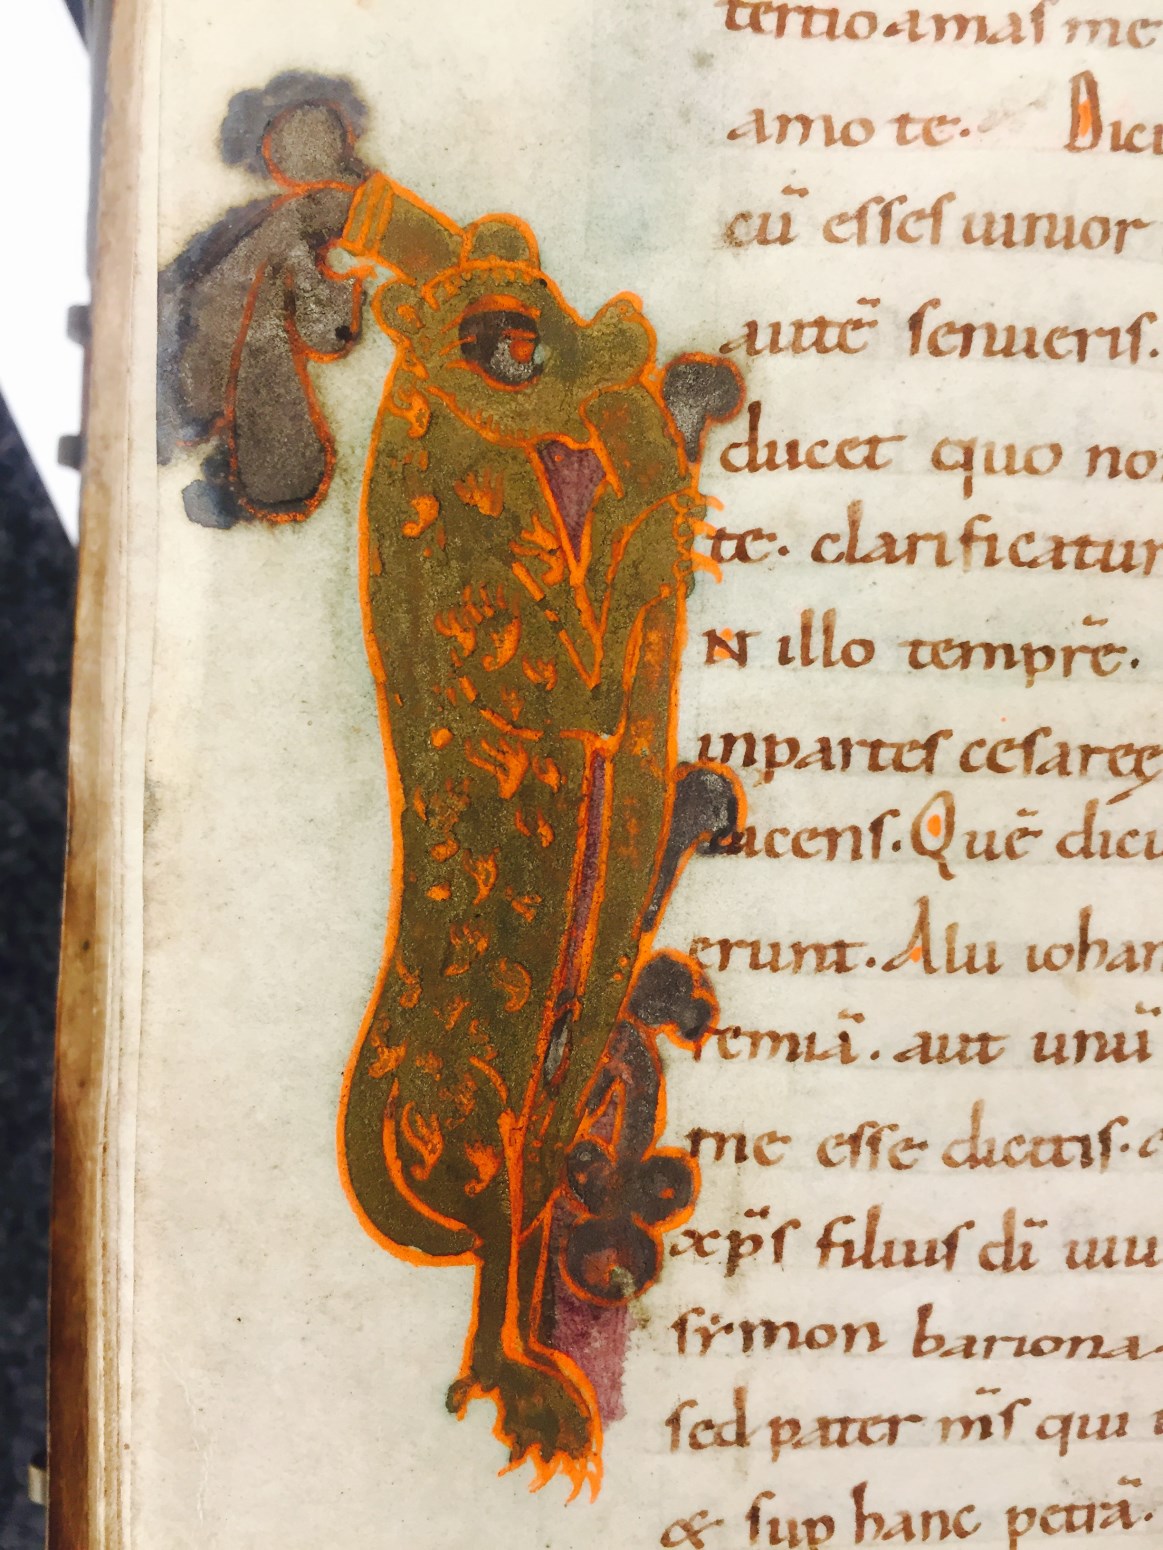 tertio amas me
amo te. Dici
cū esses iunior
autē senueris.
ducet quo no
te. clarificatur
N illo tempr̄e.
in partes cesareę
iacens. Quē dicu
erunt. Alii iohan
remiā. aut unū
me esse dicitis.
xp̄s filius dī uiui
symon bariona
sed pater m̄s qui
& sup hanc petrā.